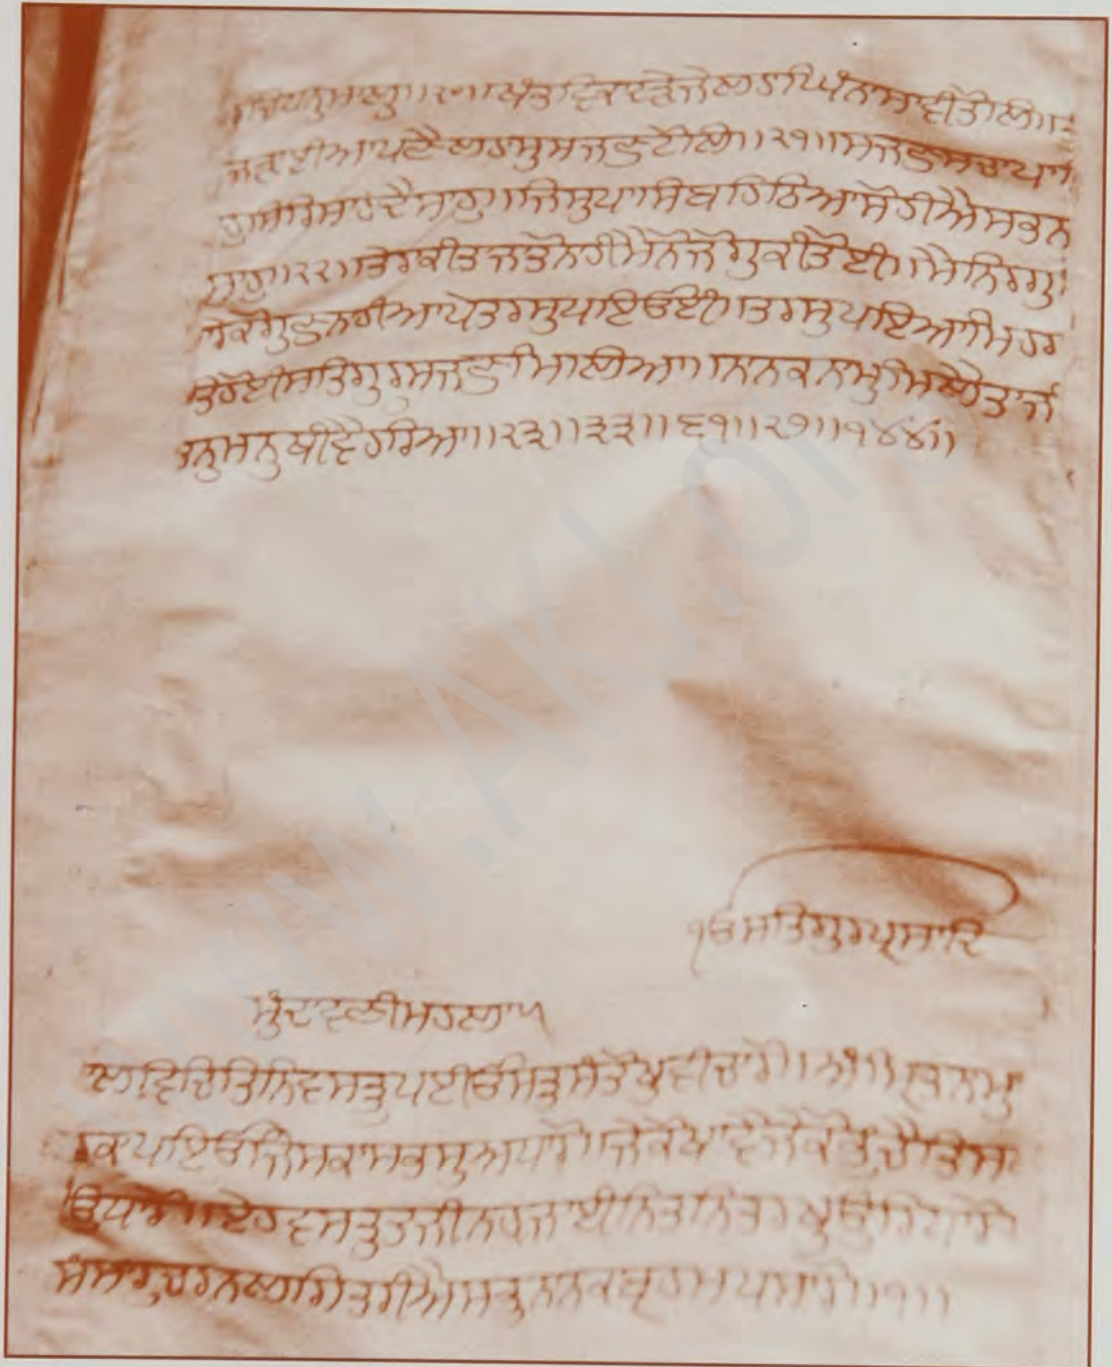 ਧਨੁ ਮਾਲੁ ॥੨੦॥ ਖੰਤ ਵਿਕਾਦੜੇ ਜੇ ਲੋੜਹਿ ਪੰਨਾਸਾਵੀ ਤੋਲੀ॥
ਪਣੈ ਲਹਮੁ ਸਜਣੁ ਟੋਲੀ॥੨੧॥ ਸਜਣੁ ਸਚਾ ਪਾ
ਹੁ ਸਿਰਿ ਸਾਹਾਦੈ ਸਾਹੁ॥ ਜਿਸੁ ਪਾਸਿ ਬਹਿਠਿਆ ਸੋਹੀਐ ਸਭਨ
ਸਾਹੁ॥੨੨॥ ਤੇਰਾ ਕੀਤਾ ਜਾਤੋ ਨਾਹੀ ਮੈਨੋ ਜੋਗੁ ਕੀਤੋਈ॥ ਮੈ ਨਿਰਗੁ
ਕੋ ਗੁਣੁ ਨਾਹੀ ਆਪੇ ਤਰਸੁ ਪਇਓਈ॥ ਤਰਸੁ ਪਇਆ ਮਿਹਰ
ਤਿ ਹੋਈ ਸਤਿਗੁਰੁ ਸਜਣੁ ਮਿਲੀਆ॥ ਨਾਨਕ ਨਾਮੁ ਮਿਲੈ ਤਾਂ ਜੀ
ਤਨੁ ਮਨੁ ਥੀਵੈ ਹਰਿਆ॥੨੩॥੩੩॥੬੧॥੨੭॥੧੪੪॥
ੴ ਸਤਿਗੁਰ ਪ੍ਰਸਾਦਿ
ਮੁੰਦਾਵਣੀ ਮਹਲਾ ੫
ਥਾਲ ਵਿਚਿ ਤਿਨਿ ਵਸਤੂ ਪਈਓ ਸਤੁ ਸੰਤੋਖੁ ਵੀਚਾਰੋ॥ ਅੰਮ੍ਰਿਤ ਨਾਮੁ
ਕਾ ਪਇਓ ਜਿਸਕਾ ਸਭਸੁ ਅਧਾਰੋ॥ ਜੇ ਕੋ ਖਾਵੈ ਜੇ ਕੋ ਭੁੰਚੈ ਤਿਸ
ਉਧਾਰੋ॥ ਏਹ ਵਸਤੁ ਤਜੀ ਨਹ ਜਾਈ ਨਿਤ ਨਿਤ ਰਖੁ ਉਰਿ ਧਾਰੋ
ਸੰਸਾਰੁ ਚਰਨ ਲਗਿ ਤਰੀਐ ਸਭੁ ਨਾਨਕ ਬ੍ਰਹਮ ਪਸਾਰੋ॥੧॥